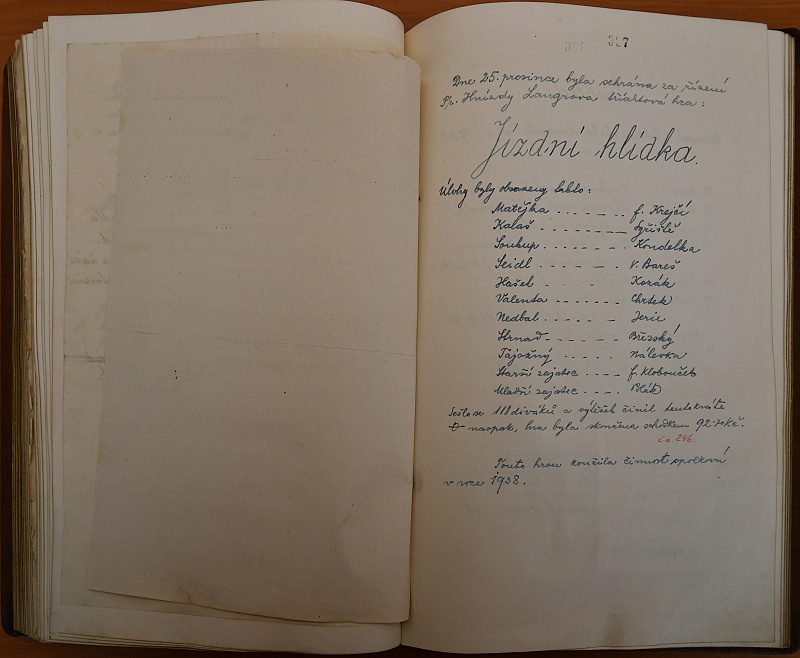 327
Dne 25. prosince byla sehrána za řízení
Př. Hnízdy Langrova tříaktová hra:
Jízdní hlídka.
Úlohy byly obsazeny takto:
Matějka ........ f. Krejčí
Kalaš ........ Syřiště
Soukup ........ Kondelka
Seidl ........ V. Bareš
Hašek ........ Kozák
Valenta ........ Chrtek
Nedbal ........ Jerie
Strnad ........ Březský
Tajožný ........ Nálevka
Starší zajatec ........ f. Klobouček
Mladší zajatec ........ Polák
Sešlo se 118 diváků a výtěžek činil tentokráte
naopak, hra byla skončena schodkem 92.70 Kč.
č.o. 246.
Touto hrou končila činnost spolková
v roce 1938.